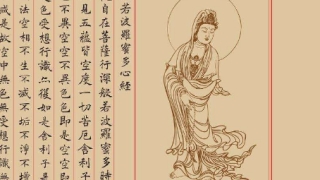 若波羅蜜多心經
自在菩薩行深般若波羅蜜多時
見五蘊皆空度一切苦厄舍利子
不異空空不異色色即是空空即
色受想行識亦復如是舍利子是
法空相不生不滅不垢不淨不增
減是故空中無色無受想行識無